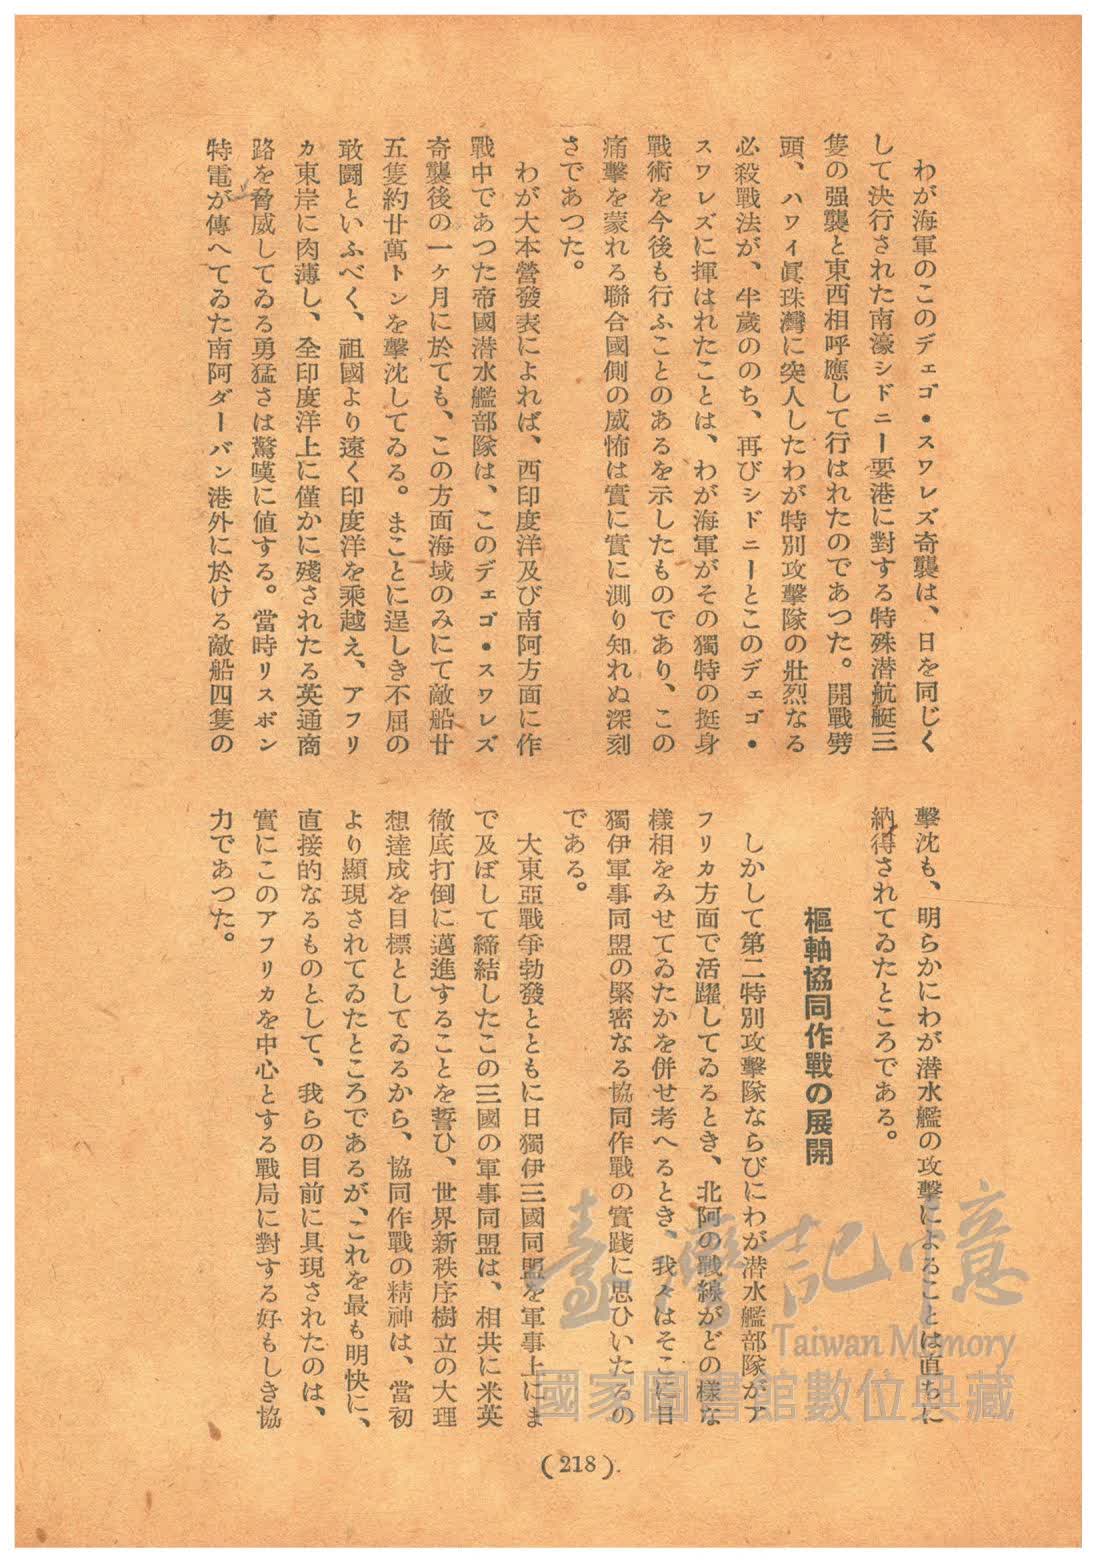 わが海軍のこのデェゴ・スワレズ奇襲は、日を同じく
して決行された南濠シドニー要港に對する特殊潜航艇三
隻の强襲と東西相呼應して行はれたのであつた。開戰劈
頭、ハワイ眞珠灣に突入したわが特別攻擊隊の壯烈なる
必殺戰法が、半歲ののち、再びシドニーとこのデェゴ・
スワレズに揮はれたことは、わが海軍がその獨特の挺身
戰術を今後も行ふことのあるを示したものであり、この
痛擊を蒙れる聯合國側の威怖は實に實に測り知れぬ深刻
さであつた。
わが大本營發表によれば、西印度洋及び南阿方面に作
戰中であつた帝國潜水艦部隊は、このデェゴ・スワレズ
奇襲後の一ケ月に於ても、この方面海域のみにて敵船廿
五隻約廿萬トンを擊沈してゐる。まことに逞しき不屈の
敢闘といふべく、祖國より遠く印度洋を乘越え、アフリ
カ東岸に肉薄し、全印度洋上に僅かに殘されたる英通商
路を脅威してゐる勇猛さは驚嘆に値する。當時リスボン
特電が傳へてゐた南阿ダーバン港外に於ける敵船四隻の
擊沈も、明らかにわが潜水艦の攻擊によることは直ちに
納得されてゐたところである。
樞軸協同作戰の展開
しかして第二特別攻擊隊ならびにわが潜水艦部隊がア
フリカ方面で活躍してゐるとき、北阿の戰線がどの樣な
樣相をみせてゐたかを併せ考へるとき、我々はそこに日
獨伊軍事同盟の緊密なる協同作戰の實踐に思ひいたるの
である。
大東亞戰爭勃發とともに日獨伊三國同盟を軍事上にま
で及ぼして締結したこの三國の軍事同盟は、相共に米英
徹底打倒に邁進することを誓ひ、世界新秩序樹立の大理
想達成を目標としてゐるから、協同作戰の精神は、當初
より顯現されてゐたところであるが、これを最も明快に、
直接的なるものとして、我らの目前に具現されたのは、
實にこのアフリカを中心とする戰局に對する好もしき協
力であつた。
(218).
臺灣記憶
Taiwan Memory
國家圖書館數位典藏